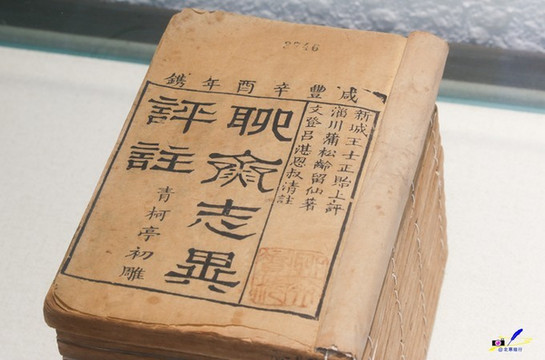 2746
咸豐辛酉年鐫
新城王士正貽上評
淄川蒲松齡留仙著
文登呂湛恩叔清註
聊齋志異
評註
青柯亭初雕